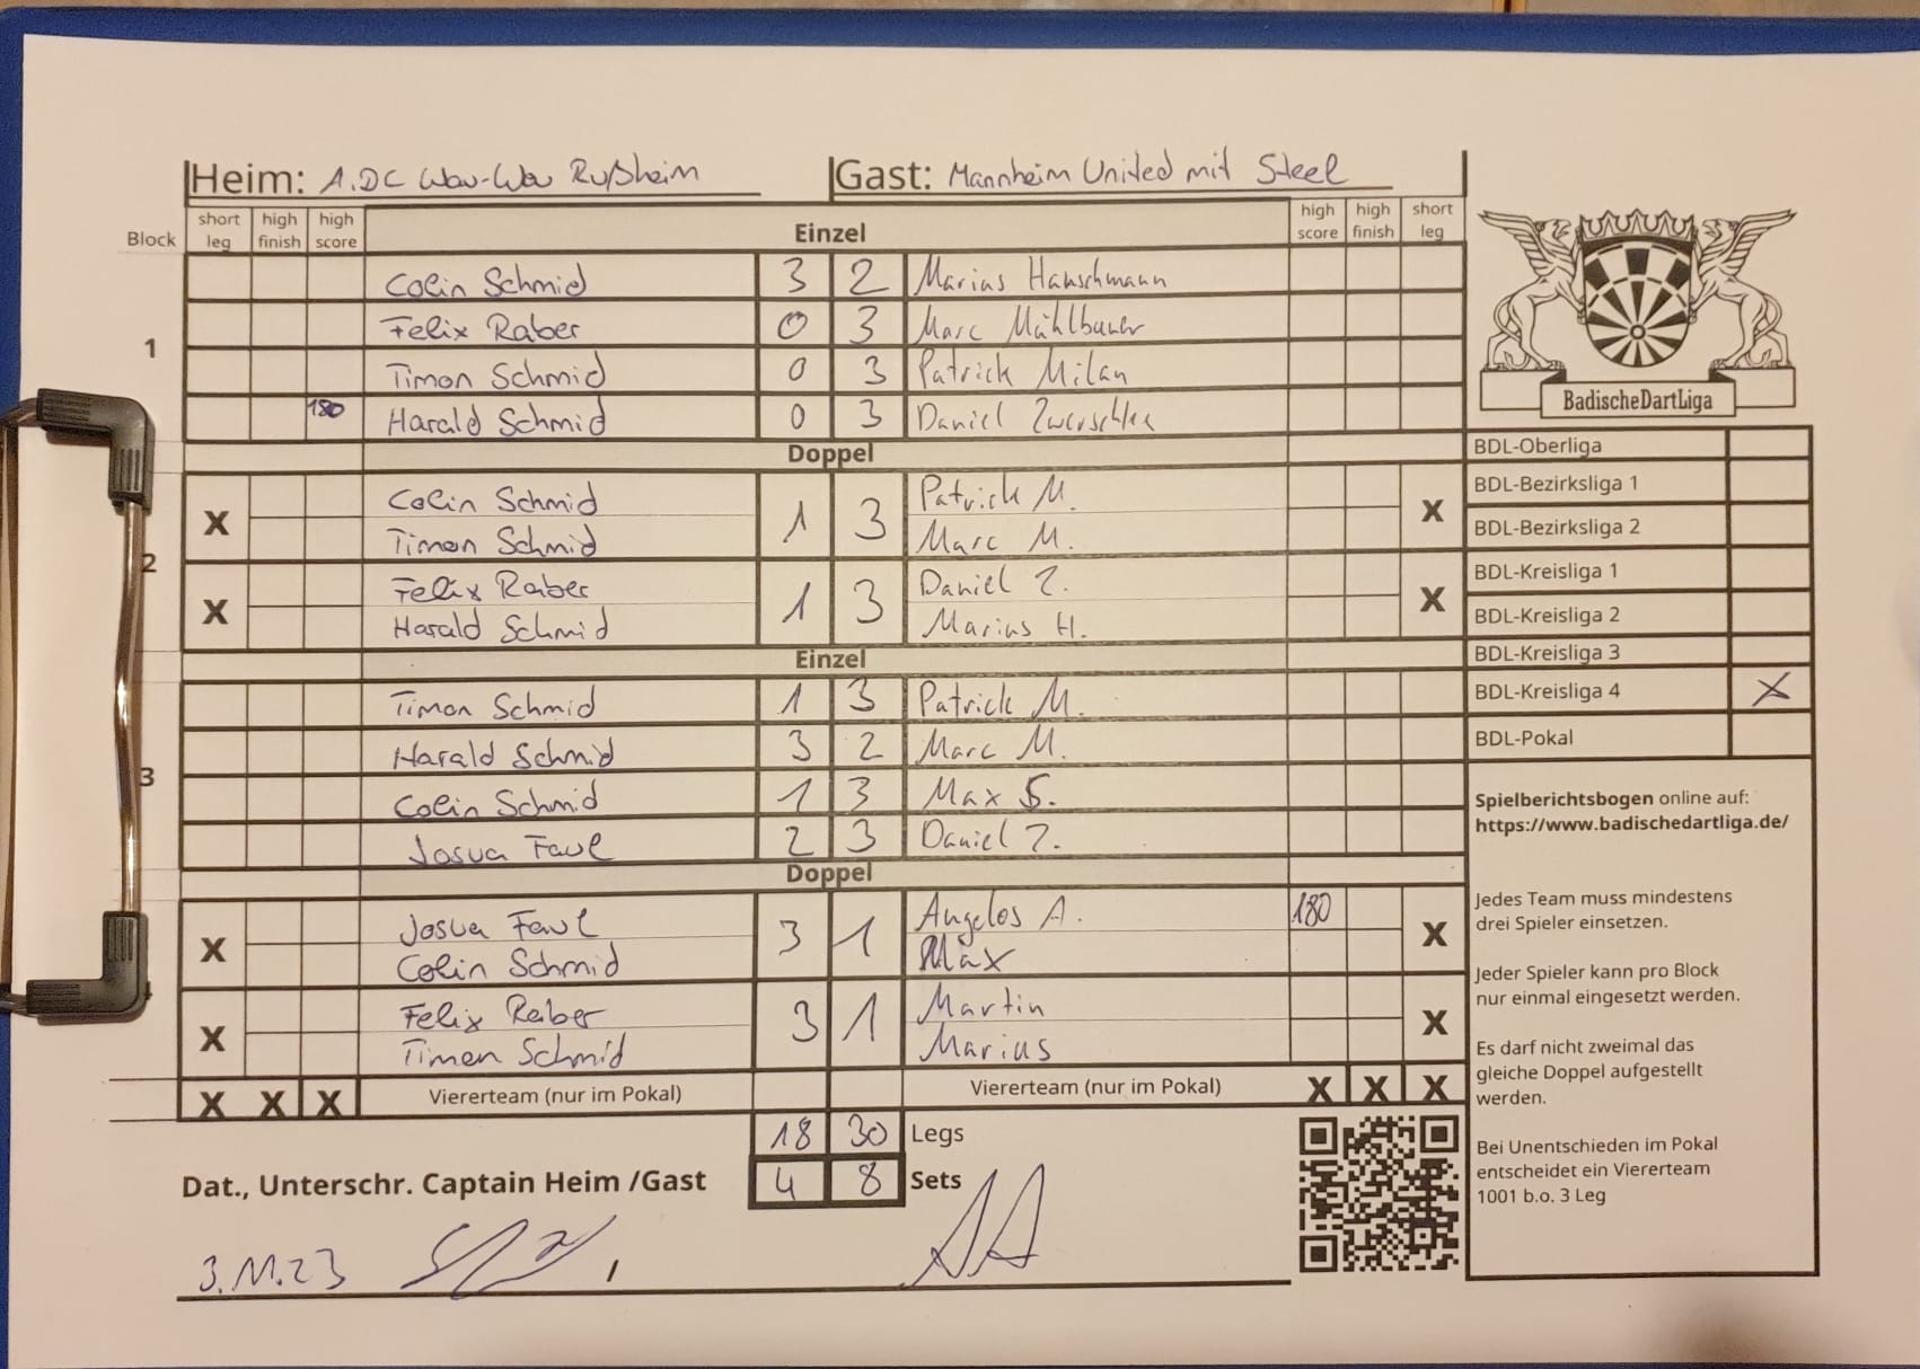 Heim: 1.DC Wau-Wau Rußheim Gast: Mannheim United mit Steel
Block short leg high finish high score Einzel high score high finish short leg
Colin Schmid 3 2 Marius Hanschmann
Felix Raber 0 3 Marc Mühlbauer
1
Timon Schmid 0 3 Patrick Milan
180 Harald Schmid 0 3 Daniel
Doppel
X Colin Schmid 1 3 Patrick M. X
Timon Schmid Marc M.
2
X Felix Raber 1 3 Daniel Z. X
Harald Schmid Marius H.
Einzel
Timon Schmid 1 3 Patrick M.
Harald Schmid 3 2 Marc M.
3
Colin Schmid 1 3 Max S.
Josua Faul 2 3 Daniel Z.
Doppel
X Josua Faul 3 1 Angelos A. 180 X
Colin Schmid Max
X Felix Raber 3 1 Martin X
Timon Schmid Marius
X X X Viererteam (nur im Pokal) Viererteam (nur im Pokal) X X X
18 30 Legs
Dat., Unterschr. Captain Heim /Gast 4 8 Sets
3.11.23
BadischeDartLiga
BDL-Oberliga
BDL-Bezirksliga 1
BDL-Bezirksliga 2
BDL-Kreisliga 1
BDL-Kreisliga 2
BDL-Kreisliga 3
BDL-Kreisliga 4 X
BDL-Pokal
Spielberichtsbogen online auf:
https://www.badischedartliga.de/
Jedes Team muss mindestens
drei Spieler einsetzen.
Jeder Spieler kann pro Block
nur einmal eingesetzt werden.
Es darf nicht zweimal das
gleiche Doppel aufgestellt
werden.
Bei Unentschieden im Pokal
entscheidet ein Viererteam
1001 b.o. 3 Leg